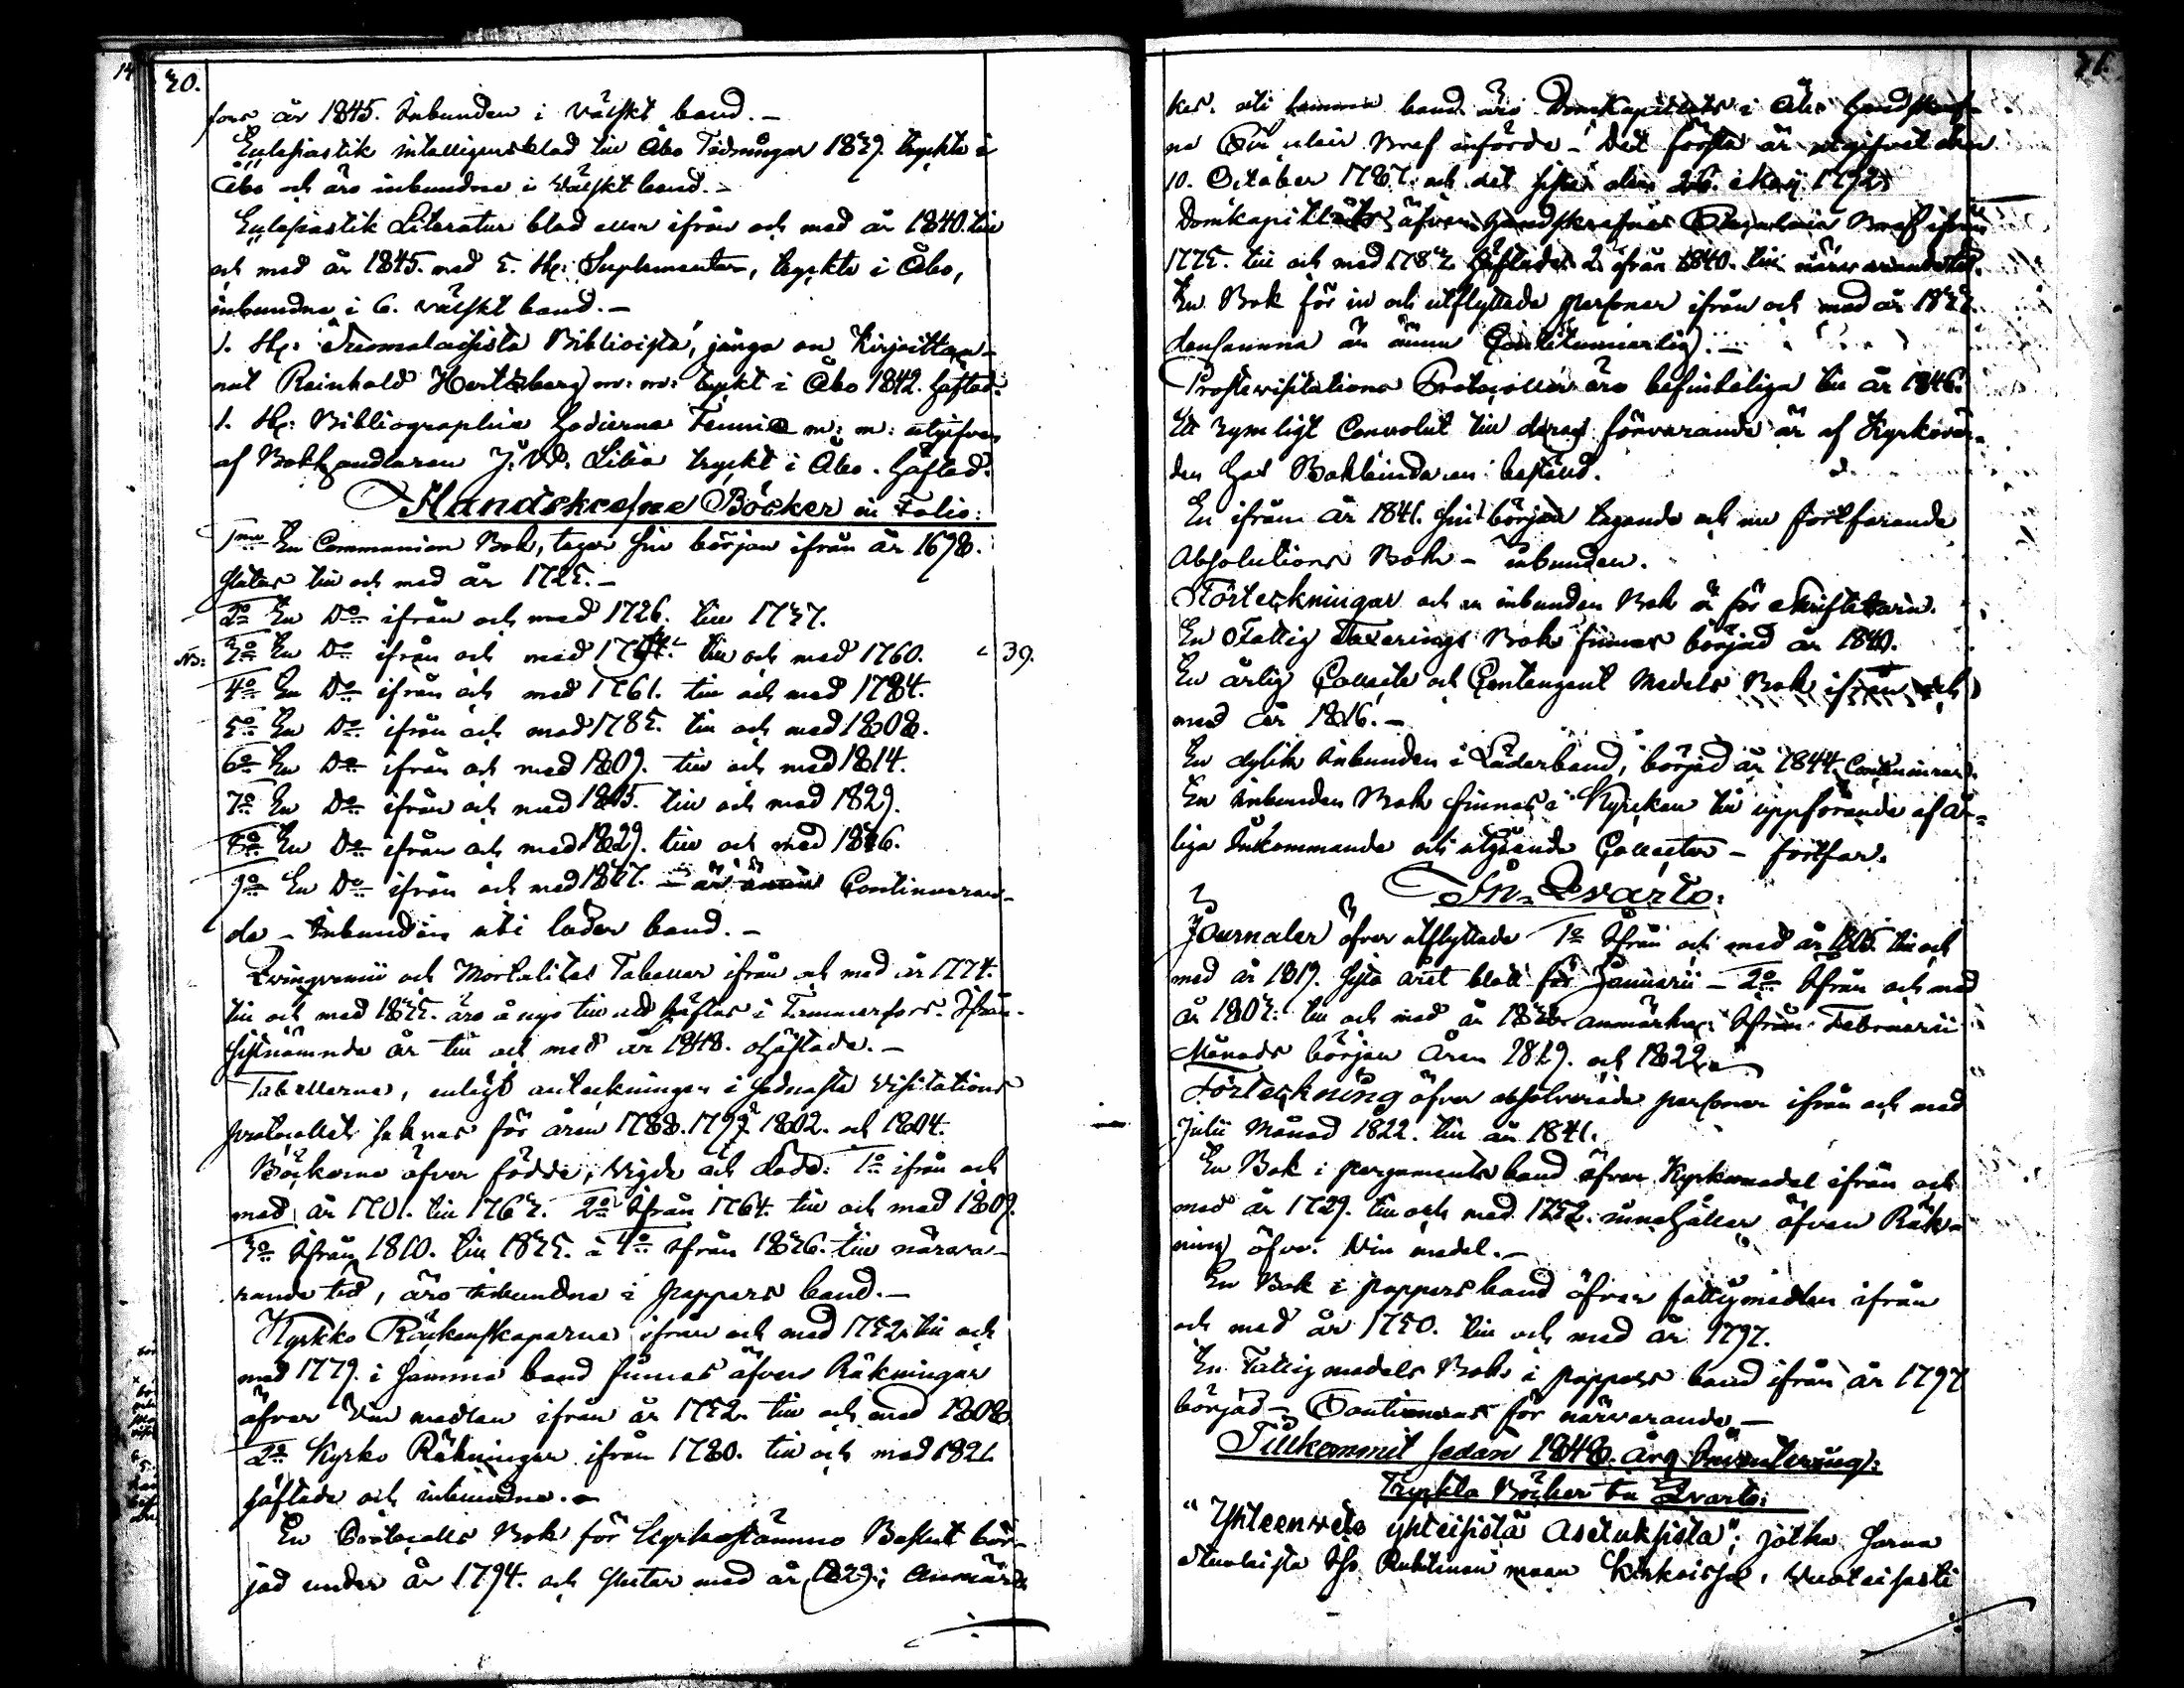 30.
fors år 1845. Inbunden i välskt band. –
Ecclesiastik intelligensblad till Åbo Tidningar 1839. tryckte i
Åbo och äro inbundne i välskt band. –
Ecclesiastik Literatur blad eller ifrån och med år 1840. till
och med år 1845. med 5. st: Suplementer, tryckte i Åbo,
inbundne i 6. välskt band. –
1. st: Suomalaisista Biblioista, jonga on kirjoittan-
nut Reinhold Hertzberg m: m: tryckt i Åbo 1842. häftad.
1. st: Bibliographia hodierna Fennia m: m: utgifven
af Bokhandlaren J. W. Lilia tryckt i Åbo. häftad.
Handskrefne Böcker in Folio:
1mo En Communion Bok, tager sin början ifrån år 1698.
slutas till och med år 1725. –
2o En Do ifrån och med 1726. till 1737.
NB: 3o En Do ifrån och med till och med 1760. 39.
4o En Do ifrån och med 1761. till och med 1784.
5o En Do ifrån och med 1785. till och med 1808.
6o En Do ifrån och med 1809. till och med 1814.
7o En Do ifrån och med 1815. till och med 1829.
8o En Do ifrån och med 1829. till och med 1836.
9o En Do ifrån och med 1837. – är ännu Continueran-
de – Inbunden uti läder band. –
och Mortalitets Tabeller ifrån och med år 1774.
till och med 1835. äro å nyo till att häftas i Tammerfors. Ifrån
sistnämnde år till och med år 1848. ohäftade. –
Tabellerne, enligt anteckningen i sednaste Visitations
protocollet saknas för åren 1788. 1797. 1802. och 1804.
Böckerne öfver födde, Vigde och döde: 1o ifrån och
med år 1701. till 1763. 2o Ifrån 1764. till och med 1809.
3o Ifrån 1810. till 1835. å 4o Ifrån 1836. till närva-
rande tid, äro inbundne i pappers band. –
Kyrko Räkenskaparne ifrån och med 1752. till och
med 1779. i samma band finnas äfven Räkningar
öfver Vin medlen ifrån år 1752. till och med 1808.
2o Kyrko Räkningar ifrån 1780. till och med 1821.
häftade och inbundne. –
En Protocolls Bok för Kyrkostämmo Beslut bör-
jad under år 1794. och slutar med år 1829; anmär-
31.
kes. uti samma band äro DomKapitlets i Åbo handskref-
ne Circulair Bref införde – Det första är utgifvet den
10. October 1787. och det sista den 26. Maij 1792.
Domkapitlets äfven handskrefne Circulair Bref ifrån
1775. till och med 1783. häftade. 2. ifrån 1840. till närvarande tid.
En Bok för in och utflyttade personer ifrån och med år
densamma är ännu Continuerlig. –
Prostevisitations Protocoller äro befinteliga till år 1846.
Ett rymligt Convolut till deras förvarande är af Kyrkovär-
den hos Bokbindaren bestäld.
En ifrån år 1841. sin början tagande och nu fortfarande
Absolutions Bok – inbunden.
Förteckningar och en inbunden Bok är för Skriftebarn.
En Fattig Taxerings Bok finnes börjad år 1840.
En årlig Collecte och Contingent Medels Bok ifrån och
med år 1816. –
En dylik inbunden i Läderband, börjad år 1844.
En inbunden Bok finnes i Kyrckan till uppförande af år-
liga inkommande och utgående Collecter – fortfar.
In Qvarto:
Journaler öfver utflyttade 1o Ifrån och med år 1805. till och
med år 1819. sista året blott för Januarii – 2o Ifrån och med
år 1803. till och med år anmärkes Ifrån Februarii
Månads början åren 1819. och 1822.
Förteckning öfver absolverade personer ifrån och med
Julii Månad 1822. till år 1841.
En Bok i pergaments band öfver Kyrkomedel ifrån och
med år 1729. till och med 1752. innehåller äfven Räk-
ning öfver Vin medel. –
En Bok i pappers band öfver fattigmedlen ifrån
och med år 1750. till och med år 1797.
En Fattigmedels Bok i pappers band ifrån år 1797
börjad – Continueras för närvarande –
Tillkommit sedan 1848. års Inventering:
Tryckta Böcker in Qvarto:
"Yhteenveto yhteisistä Asetuksista", jotka
Ruhtinan maan Kirkoissa,